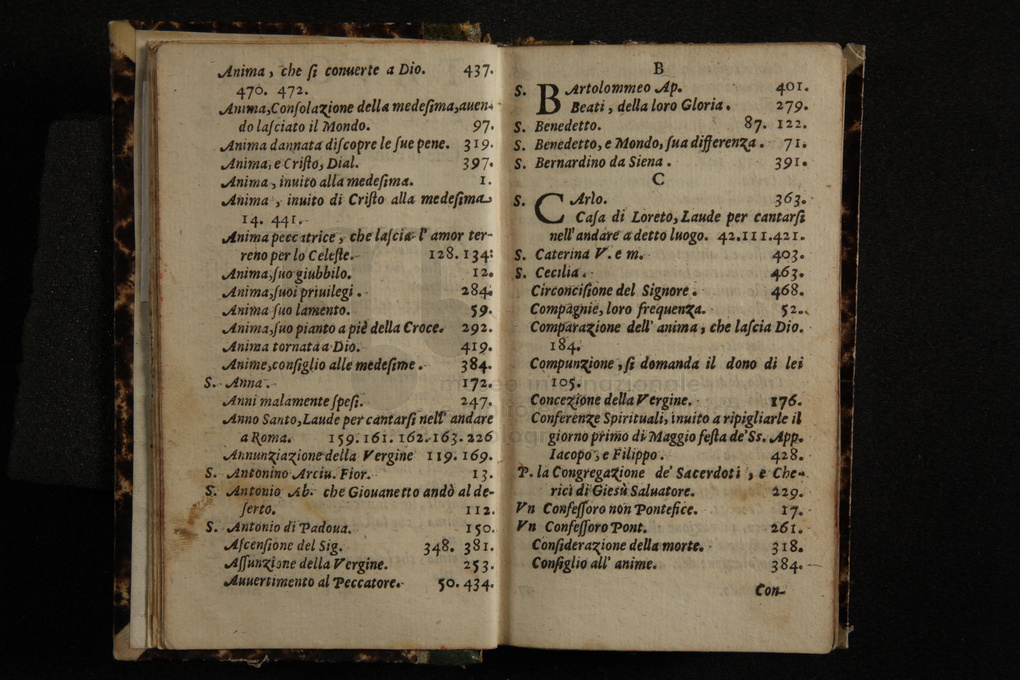 Anima, che ſi conuerte a Dio. 437.
470. 472.
Anima, Conſolazione della medeſima, auen-
do laſciato il Mondo. 97.
Anima dannata diſcopre le ſue pene. 319.
Anima, e Criſto, Dial. 397.
Anima, inuito alla medeſima. 1.
Anima, inuito di Criſto alla medeſima
14. 441.
Anima peccatrice, che laſcia l'amor ter-
reno per lo Celeſte. 128. 134:
Anima, ſuo giubbilo. 12.
Anima, ſuoi priuilegi. 284.
Anima ſuo lamento. 59.
Anima, ſuo pianto a piè della Croce. 292.
Anima tornata a Dio. 419.
Anime, conſiglio alle medeſime. 384.
S. Anna. 172.
Anni malamente ſpeſi. 247.
Anno Santo, Laude per cantarſi nell' andare
a Roma. 159. 161. 162. 163. 226
Annunziazione della Vergine 119. 169.
S. Antonino Arciu. Fior. 13.
S. Antonio Ab. che Giouanetto andò al de-
ſerto. 112.
S. Antonio di Padoua. 150.
Aſcenſione del Sig. 348. 381.
Aſſunzione della Vergine. 253.
Auuertimento al Peccatore. 50. 434.
B
S. BArtolommeo Ap. 401.
Beati, della loro Gloria. 279.
S. Benedetto. 87. 122.
S. Benedetto, e Mondo, ſua differenza. 71.
S. Bernardino da Siena. 391.
C
S. CArlo. 363.
Caſa di Loreto, Laude per cantarſi
nell' andare a detto luogo. 42. 111. 421.
S. Caterina V. e m. 403.
S. Cecilia. 463.
Circonciſione del Signore. 468.
Compagnie, loro frequenza. 52.
Comparazione dell' anima, che laſcia Dio.
184.
Compunzione, ſi domanda il dono di lei
105.
Concezione della Vergine. 176.
Conferenze Spirituali, inuito a ripigliarle il
giorno primo di Maggio feſta de' Ss. App.
Iacopo, e Filippo. 428.
P. la Congregazione de' Sacerdoti, e Che-
rici di Giesù Saluatore. 229.
Vn Confeſſoro non Pontefice. 17.
Vn Confeſſoro Pont. 261.
Conſiderazione della morte. 318.
Conſiglio all' anime. 384.
Con-